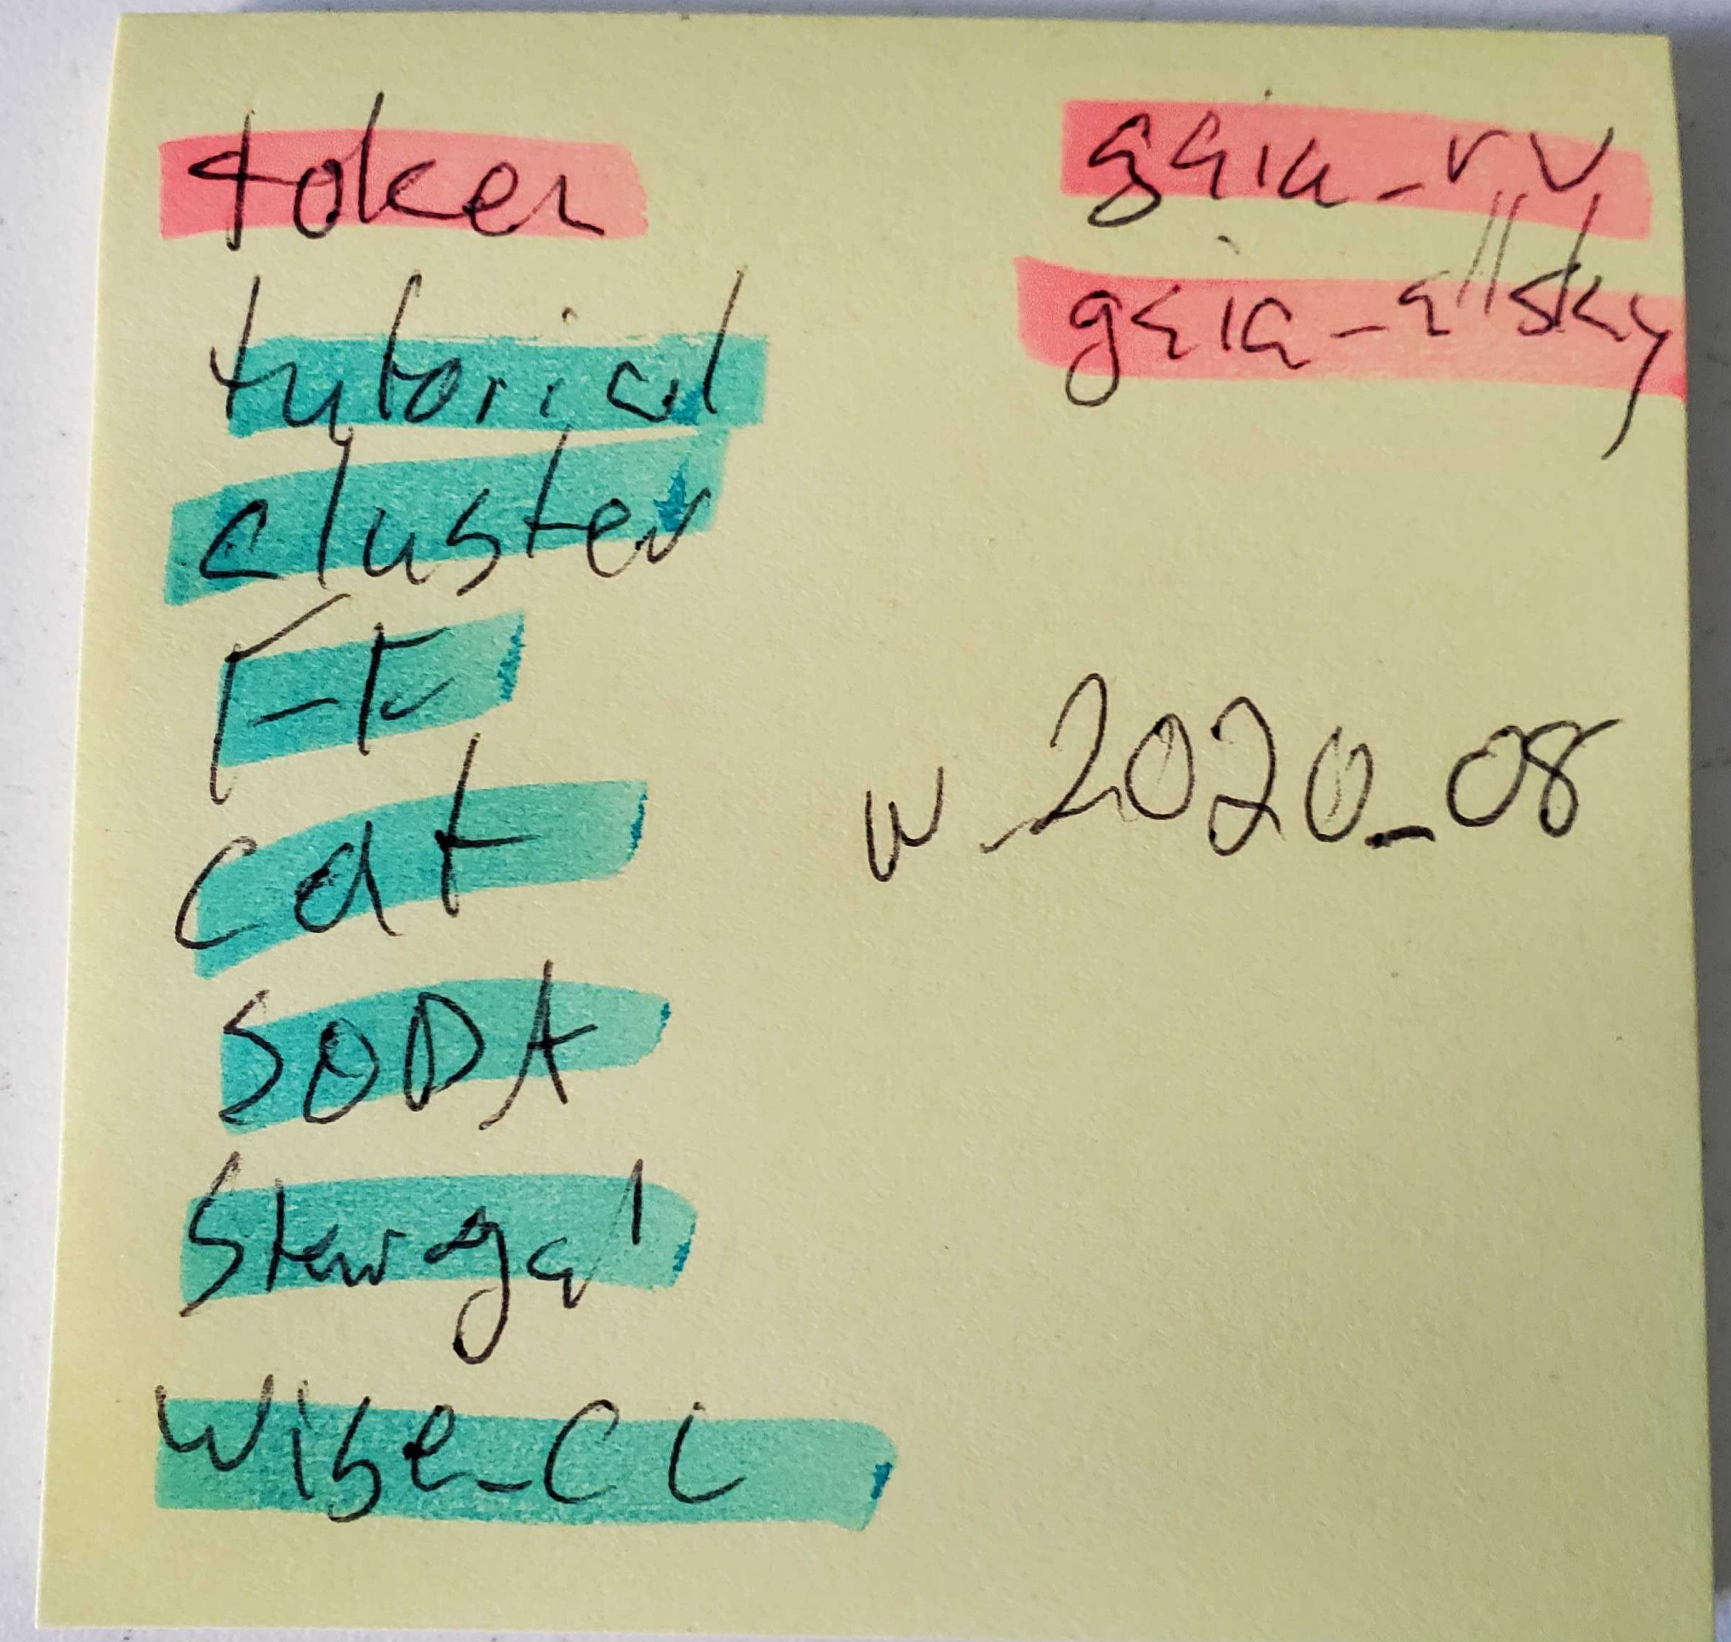 token
tutorial
cluster
cat
SODA
Stargal
Wise_CC
gaia_rv
gaia_allsky
w_2020_08